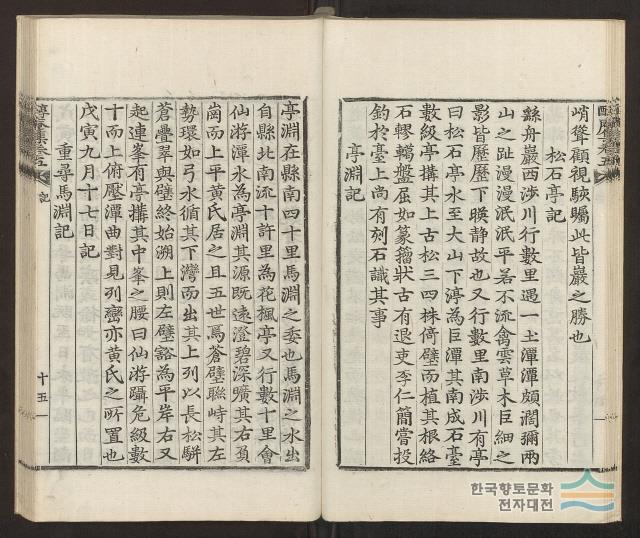 峭聳顧視駭矚此皆巖之勝也
松石亭記
繇舟巖西涉川行數里遇一土潭潭頗濶彌兩
山之趾漫漫泯泯平若不流禽雲草木巨細之
影皆歷歷下暎静故也又行數里南涉川有亭
曰松石亭水至大山下渟為巨潭其南成石臺
數級亭搆其上古松三四株倚壁而植其根絡
石轇轕盤屈如篆籀狀古有退吏李仁簡嘗投
釣於臺上尚有刻石識其事
亭淵記
亭淵在縣南四十里馬淵之委也馬淵之水出
自縣北南流十許里為花楓亭又行數十里會
仙游潭水為亭淵其源既遠澄碧深曠其右負
崗而上平黄氏居之且五世焉蒼壁聯峙其左
勢環如弓水循其下灣而出其上列以長松駢
蒼疊翠與壁終始溯上則左壁谽為平岸右又
起連峯有亭搆其中峯之腰曰仙游躡危級數
十而上俯壓潭曲對見列巒亦黄氏之所置也
戊寅九月十七日記
重尋馬淵記
記
十五
한국향토문화
전자대전